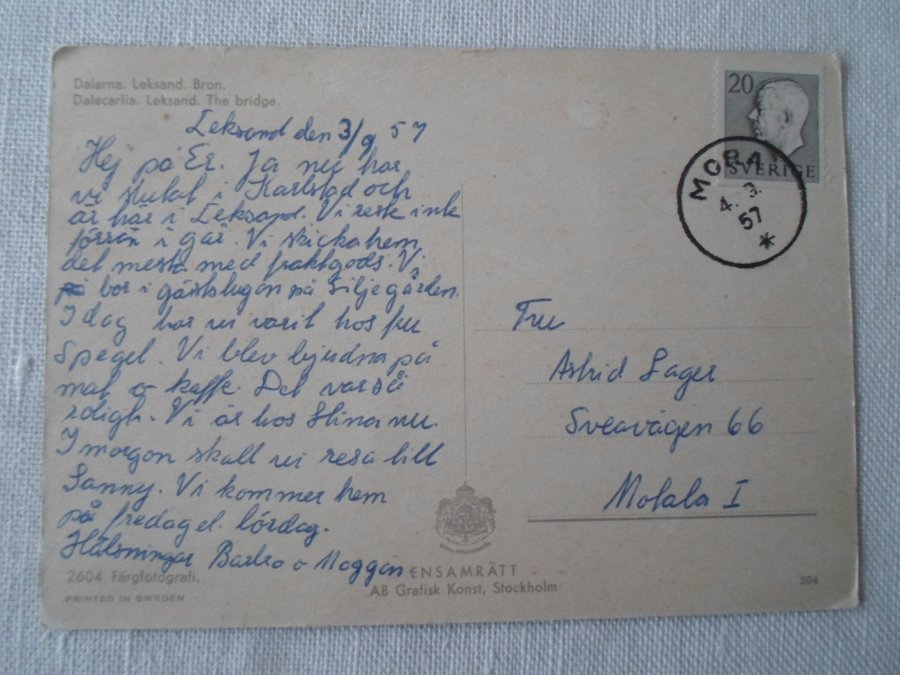 Dalarna. Leksand. Bron.
Dalecarlia. Leksand. The bridge.
Leksand den 3/9 57
Hej på Er. Ja nu har
vi slutat i Karlstad och
är här i Leksand. Vi reste inte
förrän i går. Vi skicka hem
det mesta med fraktgods. Vi
bor i gäststugan på Siljegården.
I dag har vi varit hos fru
Spegel. Vi blev bjudna på
mat o kaffe. Det var så
roligt. Vi är hos Stina nu.
I morgon skall vi resa till
Sanny. Vi kommer hem
på fredag el. lördag.
Hälsningar Barbro o Moggan
20
SVERIGE
MORA
4. 9.
57
Fru
Astrid Lager
Sveavägen 66
Motala I
ENSAMRÄTT
AB Grafisk Konst, Stockholm
2604 Färgfotografi.
PRINTED IN SWEDEN
204